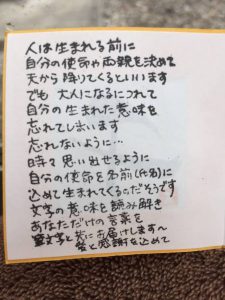 人は生まれる前に
自分の使命や両親を決めて
天から降りてくるといいます
でも 大人になるにつれて
自分の生まれた意味を
忘れてしまいます
忘れないように…
時々思い出せるように
自分の使命を名前(氏名)に
込めて生まれてくるのだそうです
文字の意味を読み解き
あなただけの言葉を
筆文字と共にお届けします〜
愛と感謝を込めて